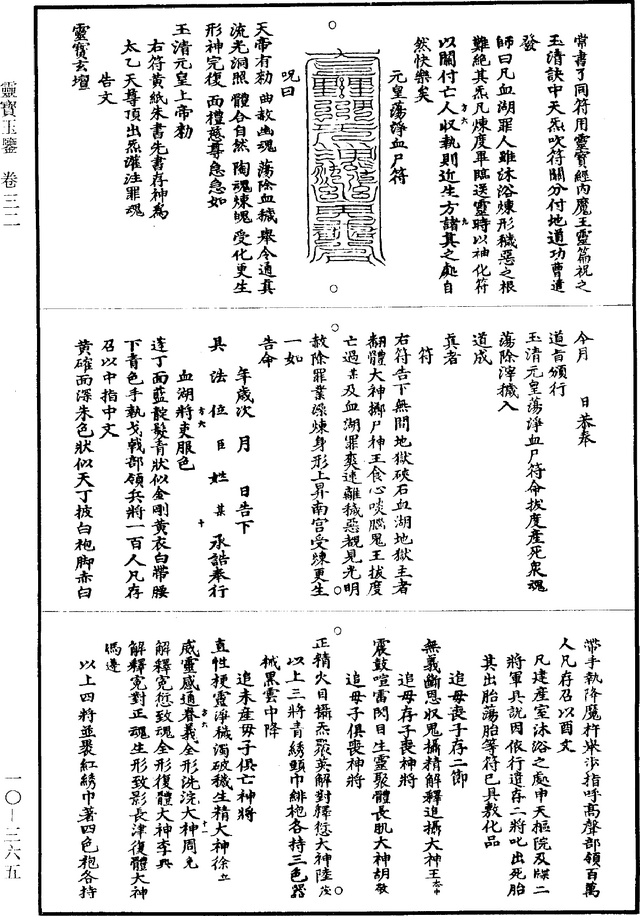 常書了同符用靈寶經內魔王靈篇祝之
玉清訣中天炁吹符關分付地道功曹遣
發
師曰凡血湖罪人雖沐浴煉形穢惡之根
難絕其炁凡煉度畢臨送靈時以袖化符
以關付亡人收執則近生方諸其之處自
然快樂矣
元皇蕩淨血尸符
呪曰
天帝有勅 曲赦幽魂 蕩除血穢 舉令通真
流光洞照 體合自然 陶魂煉魄 受化更生
形神完復 面禮慈尊急急如
玉清元皇上帝勅
右符黃紙朱書先書存神為
太乙天尊頂出炁灌注罪魂
告文
靈寶玄壇
今月 日恭奉
道旨頒行
玉清元皇蕩淨血尸符命拔度產死衆魂
蕩除滓穢入
道成
真者
符
右符告下無間地獄硤石血湖地獄主者
翻體大神擲尸神王食心啖腦鬼王拔度
亡過某及血湖罪爽速離穢惡覩見光明
赦除罪業滌煉身形上昇南宮受煉更生
一如
告命
年歲次 月 日告下
具 法 位 臣 姓 某 承誥奉行
血湖將吏服色
蓬丁面藍靛髮青狀似金剛黃衣白帶腰
下青色手執戈戟部領兵將一百人凡存
召以中指中文
黃確面深朱色狀似天丁披白袍脚赤白
帶手執降魔杵米沙指呼高聲部領百萬
人凡存召以酉文
凡建產室沐浴之處申天樞院及牒二
將軍具詋因依行遣存二將叱出死胎
其出胎蕩胎等符已具敷化品
追母喪子存二節
無義斷恩收鬼攝精解釋追攝大神王
追母存子喪神將
震鼓喧雷閃目生靈聚體長肌大神胡
追母子俱喪神將
正精火目攝炁聚英解對釋愆大神陸
以上三將青綉顆巾緋袍各持三色器
械黑雲中降
追未產母子俱亡神將
直性梗靈淨穢濁破穢生精大神徐
威靈感通春義全形洗浣大神周
解釋寃愆致魂全形復體大神李
解釋寃對正魂生形致影長津復體大神
馮
以上四將並裹紅綉巾著四色袍各持
靈寶玉鑒 卷三二
一〇-三六五